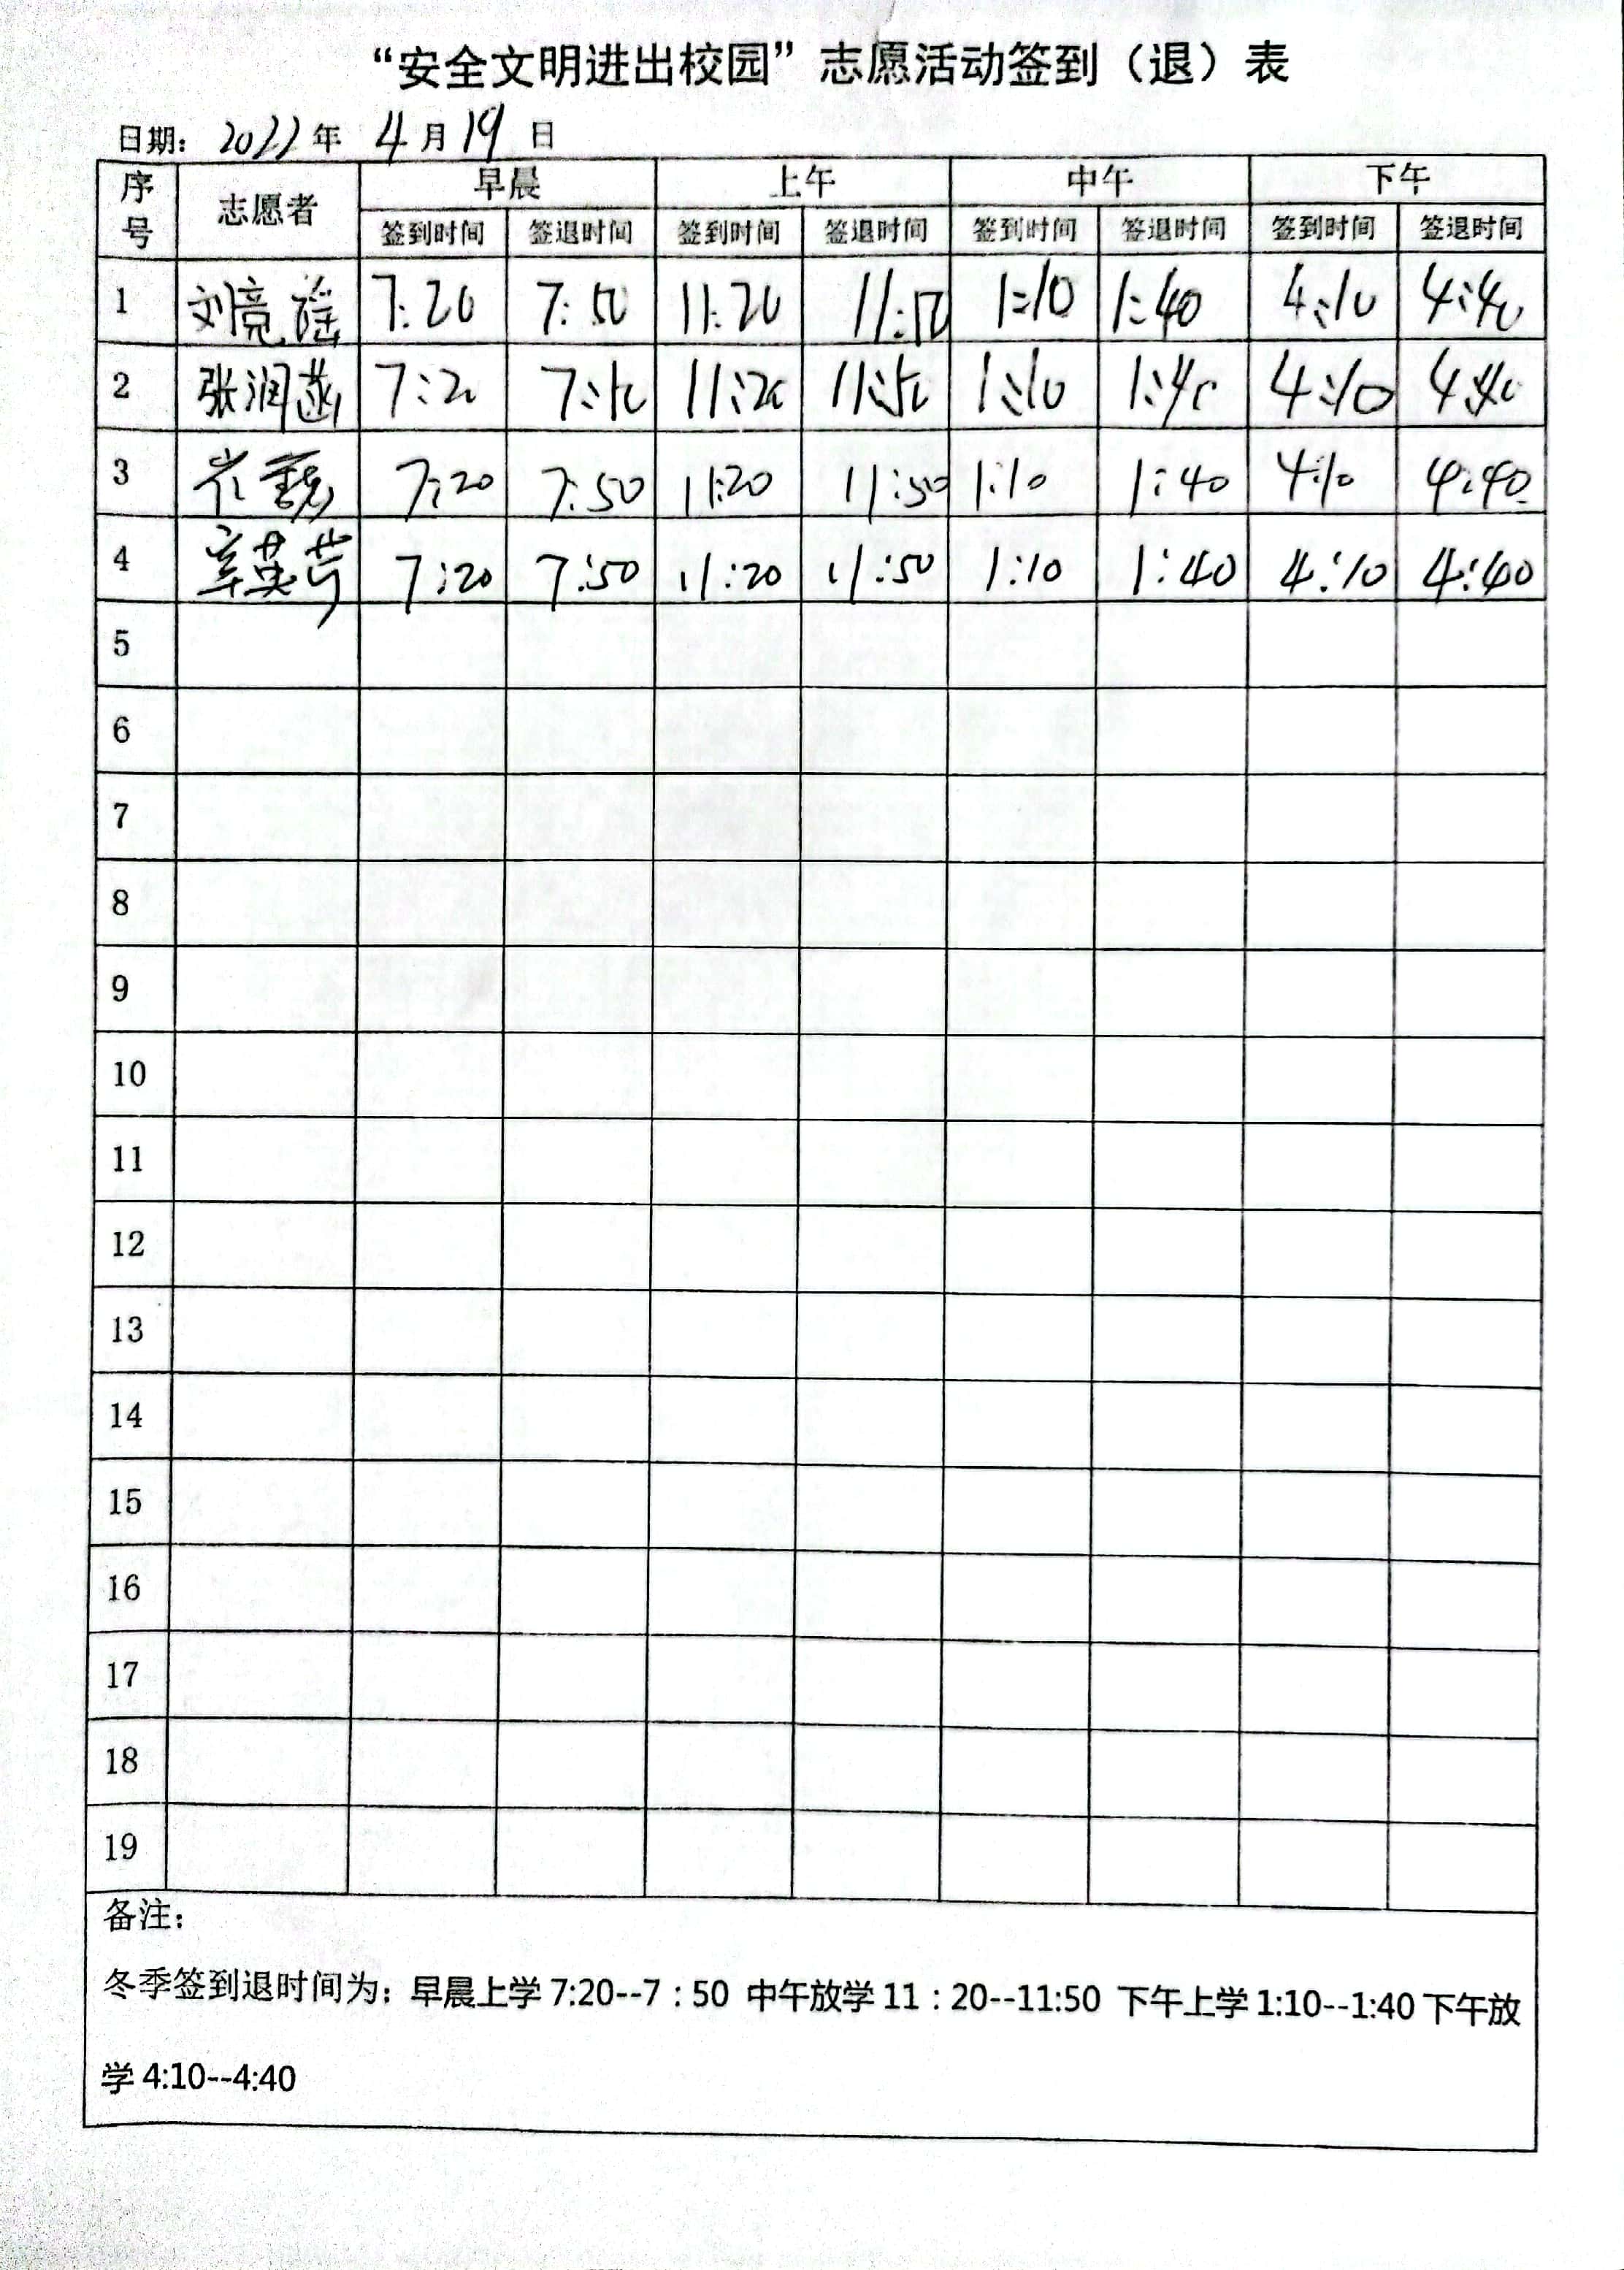 “安全文明进出校园”志愿活动签到（退）表
日期： 2022 年 4 月 19 日
序号 志愿者 早晨 上午 中午 下午
签到时间 签退时间 签到时间 签退时间 签到时间 签退时间 签到时间 签退时间
1 刘竟谣 7:20 7:50 11:20 11:50 1:10 1:40 4:10 4:40
2 张润菡 7:20 7:50 11:20 11:50 1:10 1:40 4:10 4:40
3 7:20 7:50 11:20 11:50 1:10 1:40 4:10 4:40
4 7:20 7:50 11:20 11:50 1:10 1:40 4:10 4:40
5
6
7
8
9
10
11
12
13
14
15
16
17
18
19
备注：
冬季签到退时间为：早晨上学 7:20--7：50 中午放学 11：20--11:50 下午上学 1:10--1:40 下午放
学 4:10--4:40